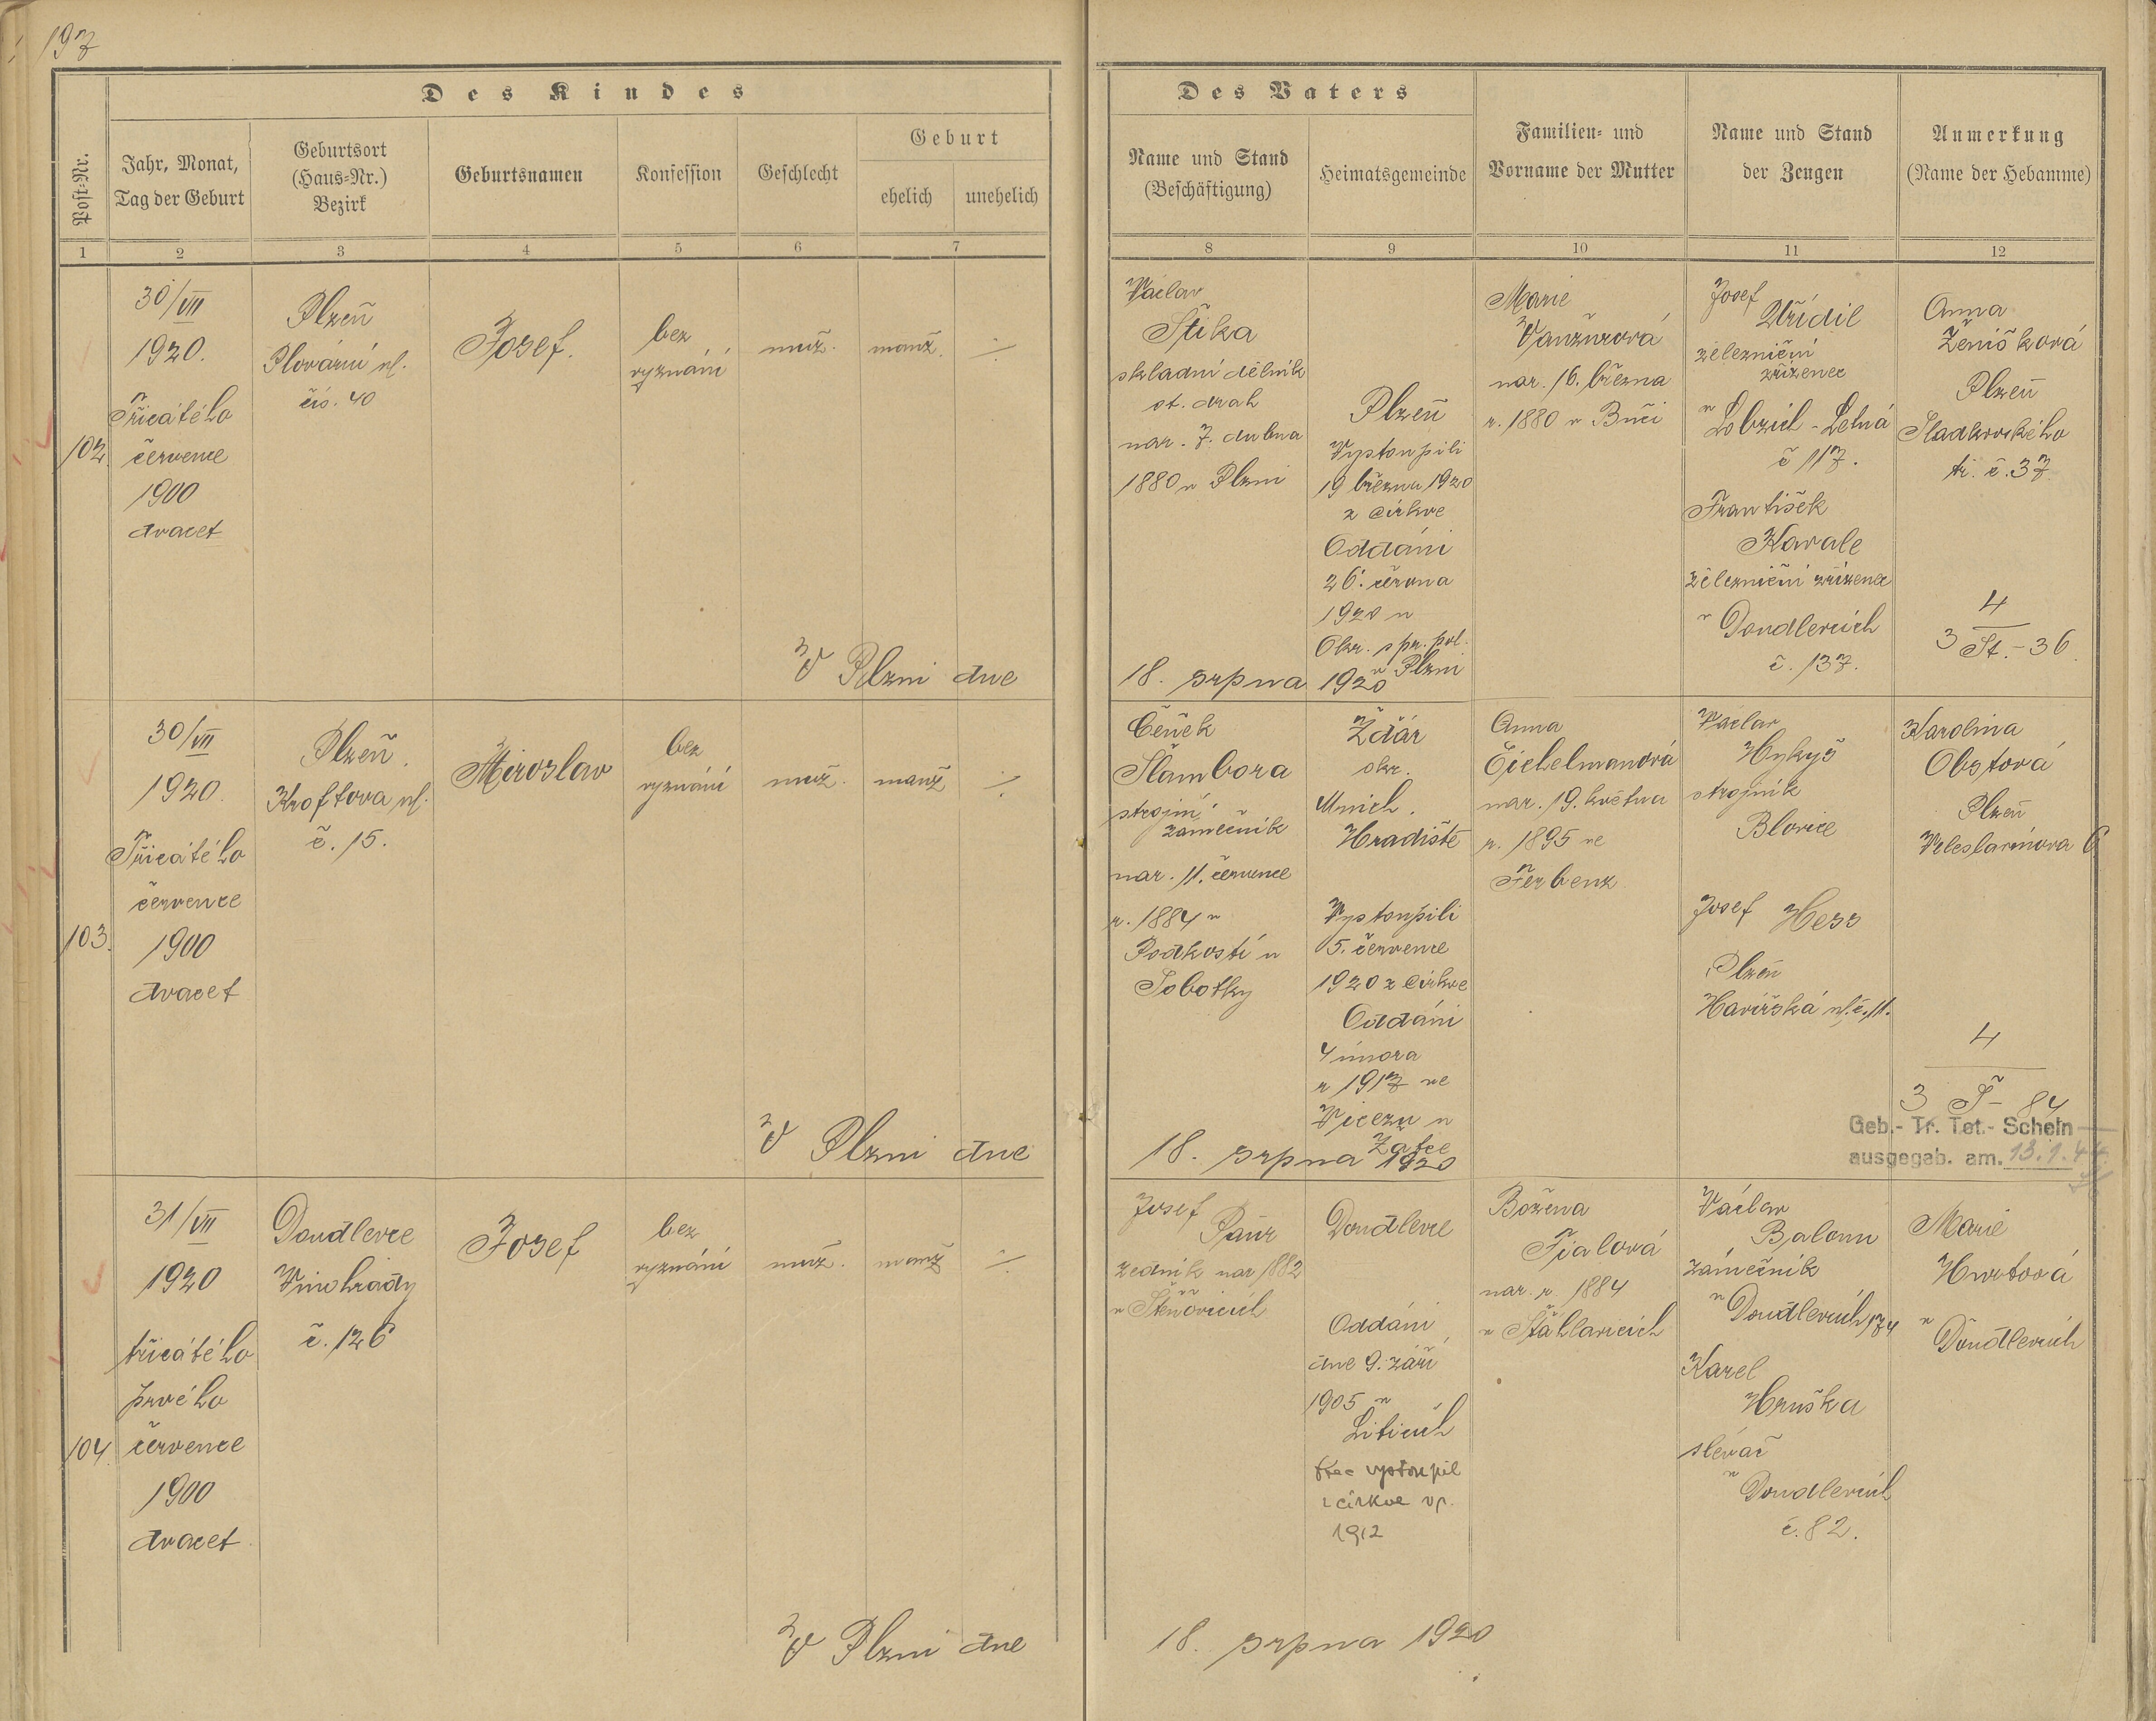 197
Des Kindes
Des Vaters
Post-Nr.
Jahr, Monat,
Tag der Geburt
Geburtsort
(Haus-Nr.)
Bezirk
Geburtsnamen
Konfession
Geschlecht
Geburt
ehelich
unehelich
Name und Stand
(Beschäftigung)
Heimatsgemeinde
Familien- und
Vorname der Mutter
Name und Stand
der Zeugen
Anmerkung
(Name der Hebamme)
1 2 3 4 5 6 7 8 9 10 11 12
102.
30/VII
1920.
Třicátého
července
1900
dvacet
Plzeň
Plovární ul.
čís. 40
Josef.
bez
vyznání
muž.
manž.
÷
Václav
Štika
skladní dělník
st. drah
nar. 7. dubna
1880 v Plzni
Plzeň
Vystoupili
19 března 1920
z církve
Oddáni
26. června
1920 u
Okr. spr. pol.
v Plzni
Marie
Vanžurová
nar. 16. března
r. 1880 v Buči
Josef
Uřídil
železniční
zřízenec
v Lobzích - Letná
č 117.
František
Kavale
železniční zřízenec
v Doudlevcích
č. 137.
Anna
Ženíšková
Plzeň
Sladkovského
tř. č. 37
4
3 St. - 36
V Plzni dne
18. srpna 1920
103.
30/VII
1920.
Třicátého
července
1900
dvacet
Plzeň.
Kroftova ul.
č. 15.
Miroslav
bez
vyznání
muž.
manž
÷
Čeněk
Šlambora
strojní
zámečník
nar. 11. července
r. 1884 v
Podkostí u
Sobotky
Žďár
okr.
Mnich.
Hradiště
Vystoupili
5. července
1920 z církve
Oddáni
4 února
r 1917 ve
u
Žatce
Anna
Eichelmanová
nar. 19. května
r. 1895 ve
Ferbenz
Václav
Hykyš
strojník
Blovice
Josef Hess
Plzeň
Havířská ul. č. 11.
Karolina
Obstová
Plzeň
Veleslavínova 6
4
3 Š - 84
Geb.- Tr. Tot.- Schein
ausgegeb. am. 13.1.44
V Plzni dne
18. srpna 1920
104.
31/VII
1920
třicátého
prvého
července
1900
dvacet
Doudlevce
Vinohrady
č. 126
Josef
bez
vyznání
muž.
manž
÷
Josef
Paur
zedník nar 1882
v Štěnovicích
Doudlevce
Oddáni
dne 9. září
1905 v
Liticích
Otec vystoupil
z církve v r.
1912
Božena
Fialová
nar. r. 1884
v Šťáhlavicích
Václav
Baloun
zámečník
v Doudlevcích 174
Karel
Hruška
slévač
v Doudlevcích
č. 82.
Marie
Hurtová
v
Doudlevcích
V Plzni dne
18. srpna 1920